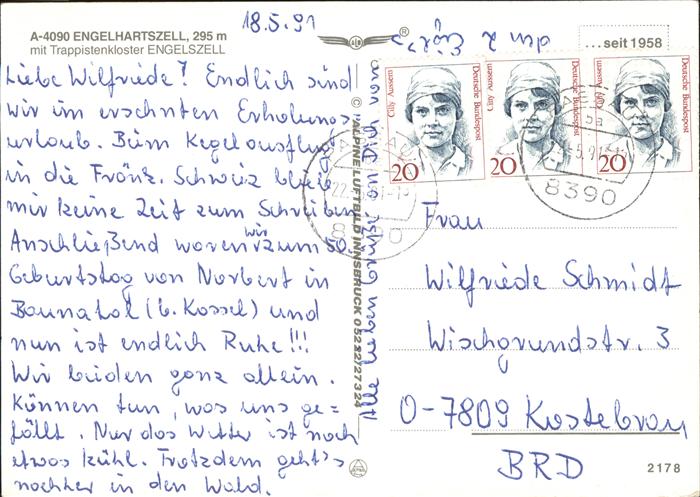 18.5.91
A-4090 ENGELHARTSZELL, 295 m
mit Trappistenkloster ENGELSZELL
...seit 1958
Liebe Wilfriede! Endlich sind
wir im ersehnten Erholungs-
urlaub. Beim Kegelausflug
in die Fränk. Schweiz blieb
mir keine Zeit zum Schreiben.
Anschließend waren wir zum 50.
Geburtstag von Norbert in
Baunatal (b. Kassel) und
nun ist endlich Ruhe!!!
Wir beiden ganz allein.
Können tun, was uns ge-
fällt. Nur das Wetter ist noch
etwas kühl. Trotzdem geht's
nachher in den Wald.
Alle lieben Grüße an Dich von
den 2
© ALPINE LUFTBILD INNSBRUCK 05222/27324
Cilly Aussem
Deutsche Bundespost
20
Cilly Aussem
Deutsche Bundespost
20
Cilly Aussem
Deutsche Bundespost
20
8390
8390
Frau
Wilfriede Schmidt
Wischgrundstr. 3
O-7809 Kostebrau
BRD
2178